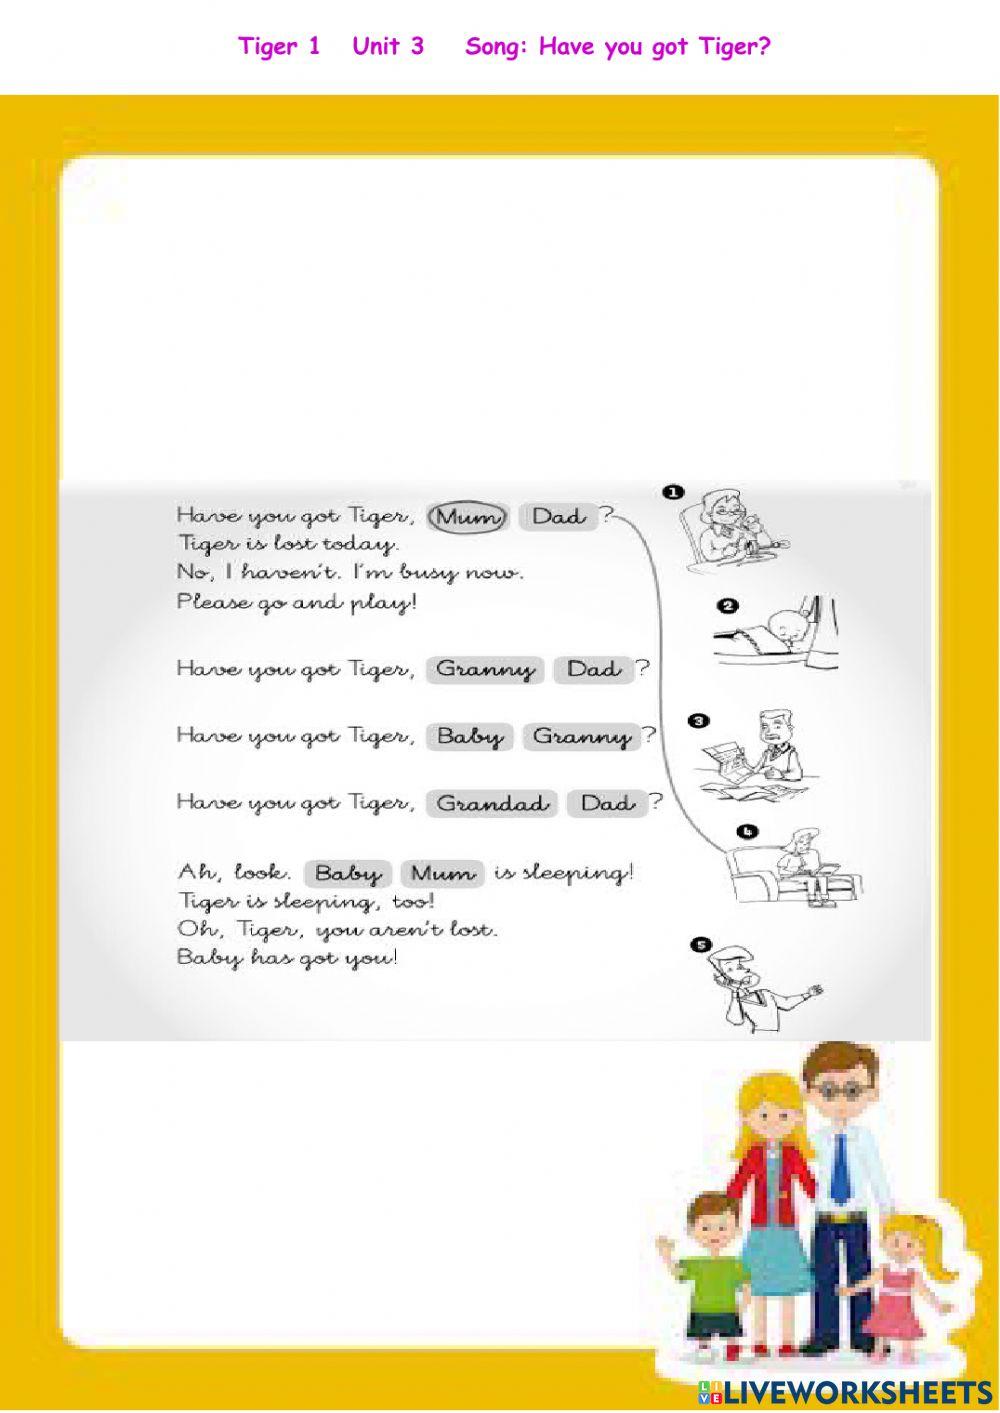 Tiger 1 Unit 3 Song: Have you got Tiger?
Have you got Tiger, Mum Dad ?
Tiger is lost today.
No, I haven't. I'm busy now.
Please go and play!
Have you got Tiger, Granny Dad ?
Have you got Tiger, Baby Granny ?
Have you got Tiger, Grandad Dad ?
Ah, look. Baby Mum is sleeping!
Tiger is sleeping, too!
Oh, Tiger, you aren't lost.
Baby has got you!
1
2
3
4
5
LIVEWORKSHEETS